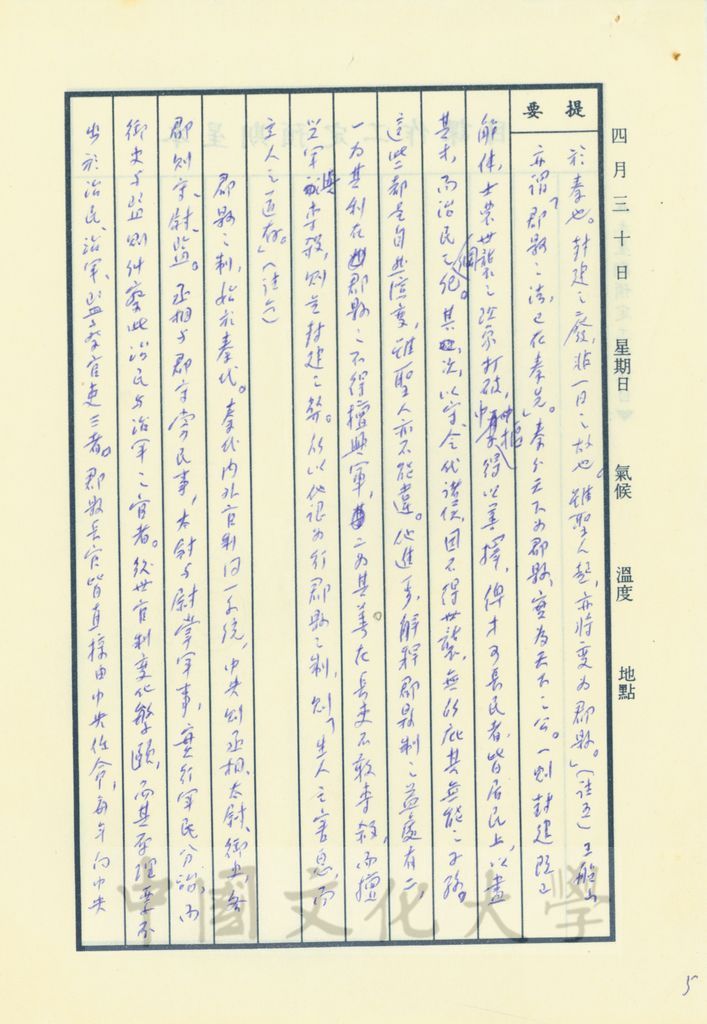 提要
四月三十日 星期日 氣候 溫度 地點
於秦也。封建之廢，非一日之故也，雖聖人起，亦將變為郡縣。」（註五）王船山
亦謂「郡縣之法，已在秦先。」秦分天下為郡縣，實為天下之公。一則封建既已
解体，士農世襲之改宗打破，中樞得以選擇，俾才可長民者，皆居民上，以盡
其才，而治民之紀。其次，以守令代諸侯，固不得世襲，無以庇其無能之子孫。
這些都是自然演變，雖聖人亦不能違。他進多解釋郡縣制之益處有二，
一為其利在郡縣之不得擅興軍，二為其善在長吏不敢專殺，而擅
興軍與專殺，則是封建之弊。所以他認為行郡縣之制，則「生人之害息，而
主人之道存。」（註六）
郡縣之制，始於秦代。秦代內外官制同一系統，中央則丞相、太尉、御史，各
郡則守、尉、監。丞相與郡守掌民事，太尉與尉掌軍事，實行軍民分治，而
御史與監則伺察此治民與治軍之官者。後世官制變化繁頤，而其原理要不
出於治民、治軍、監察官吏三者。郡縣長官皆直接由中央任命，每年向中央
中國文化大學
5